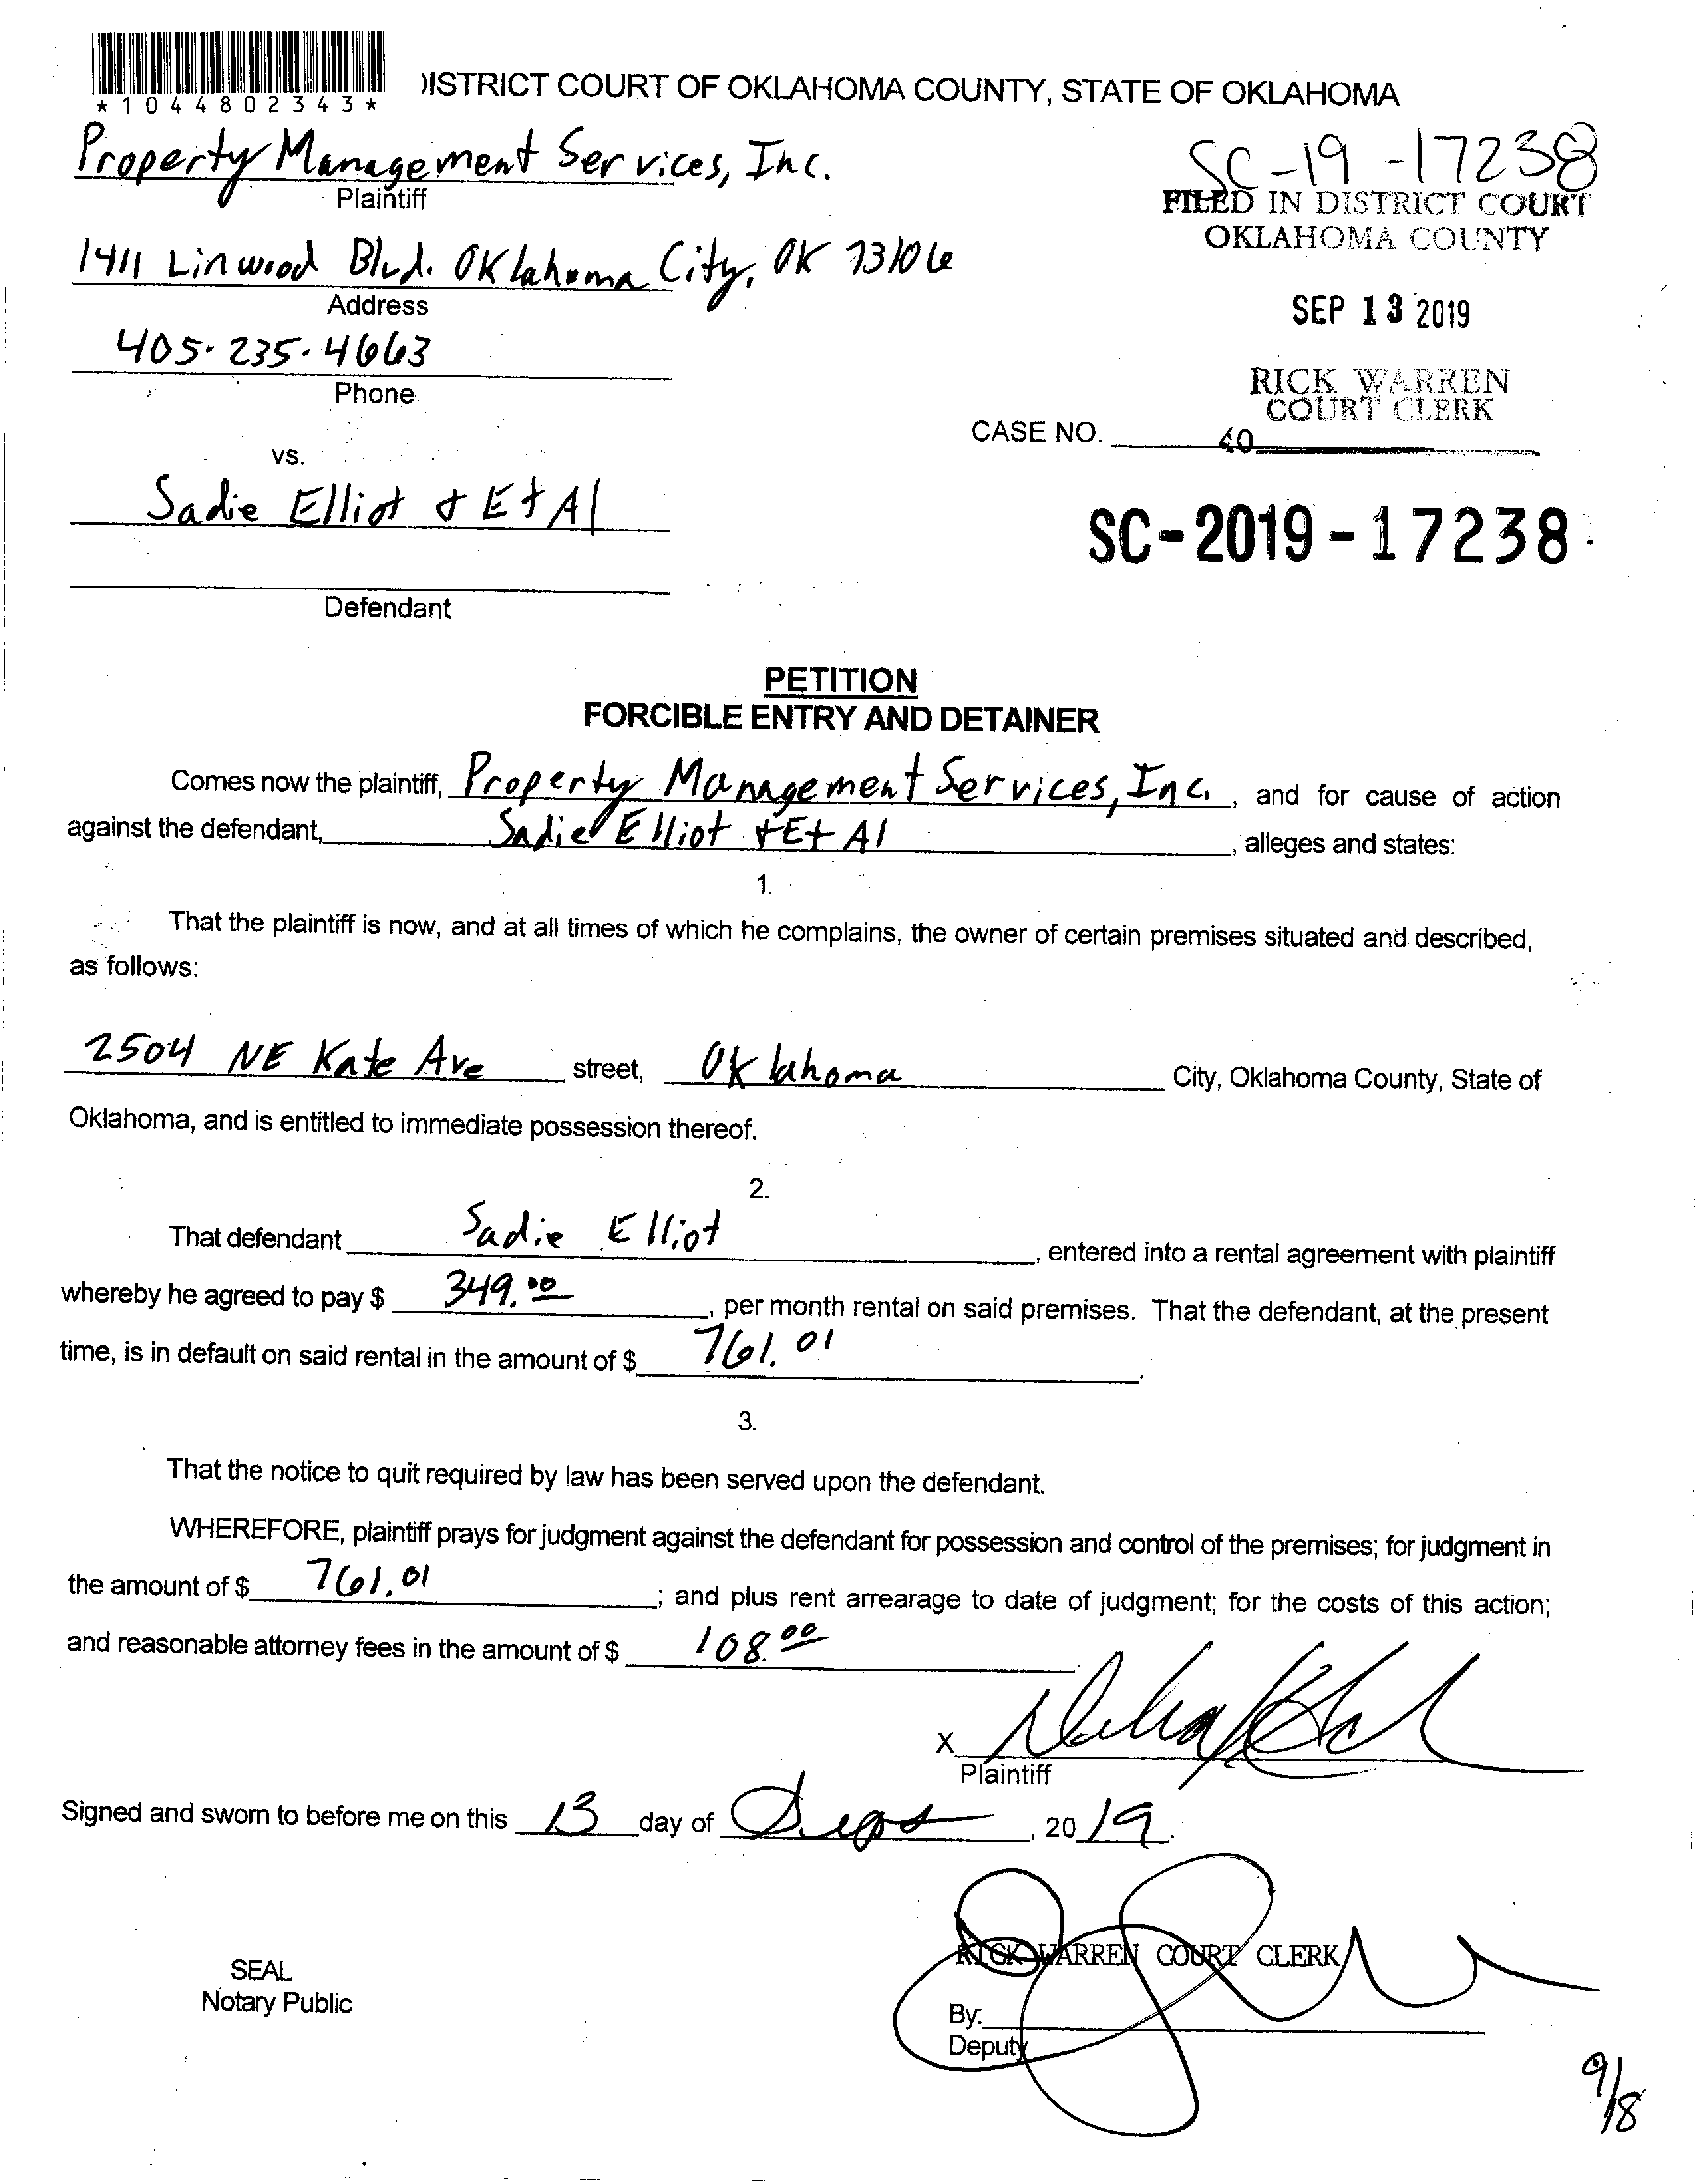 *1044802343*
DISTRICT COURT OF OKLAHOMA COUNTY, STATE OF OKLAHOMA
Property Management Services, Inc.
Plaintiff
SC-19-17238
FILED IN DISTRICT COURT
OKLAHOMA COUNTY
1411 Linwood Blvd. Oklahoma City, OK 73106
Address
SEP 13 2019
405-235-4663
Phone
RICK WARREN
COURT CLERK
CASE NO.
40
vs.
Sadie Elliot & Et Al
SC-2019-17238
Defendant
PETITION
FORCIBLE ENTRY AND DETAINER
Comes now the plaintiff, Property Management Services, Inc., and for cause of action
against the defendant, Sadie Elliot & Et Al, alleges and states:
1.
That the plaintiff is now, and at all times of which he complains, the owner of certain premises situated and described,
as follows:
2504 NE Kate Ave street, Oklahoma City, Oklahoma County, State of
Oklahoma, and is entitled to immediate possession thereof.
2.
That defendant Sadie Elliot, entered into a rental agreement with plaintiff
whereby he agreed to pay $ 349.00, per month rental on said premises. That the defendant, at the present
time, is in default on said rental in the amount of $ 761.01.
3.
That the notice to quit required by law has been served upon the defendant.
WHEREFORE, plaintiff prays for judgment against the defendant for possession and control of the premises; for judgment in
the amount of $ 761.01; and plus rent arrearage to date of judgment; for the costs of this action;
and reasonable attorney fees in the amount of $ 108.00
X
Plaintiff
Signed and sworn to before me on this 13 day of Sept, 2019.
RICK WARREN COURT CLERK
SEAL
Notary Public
By:
Deputy
9/8